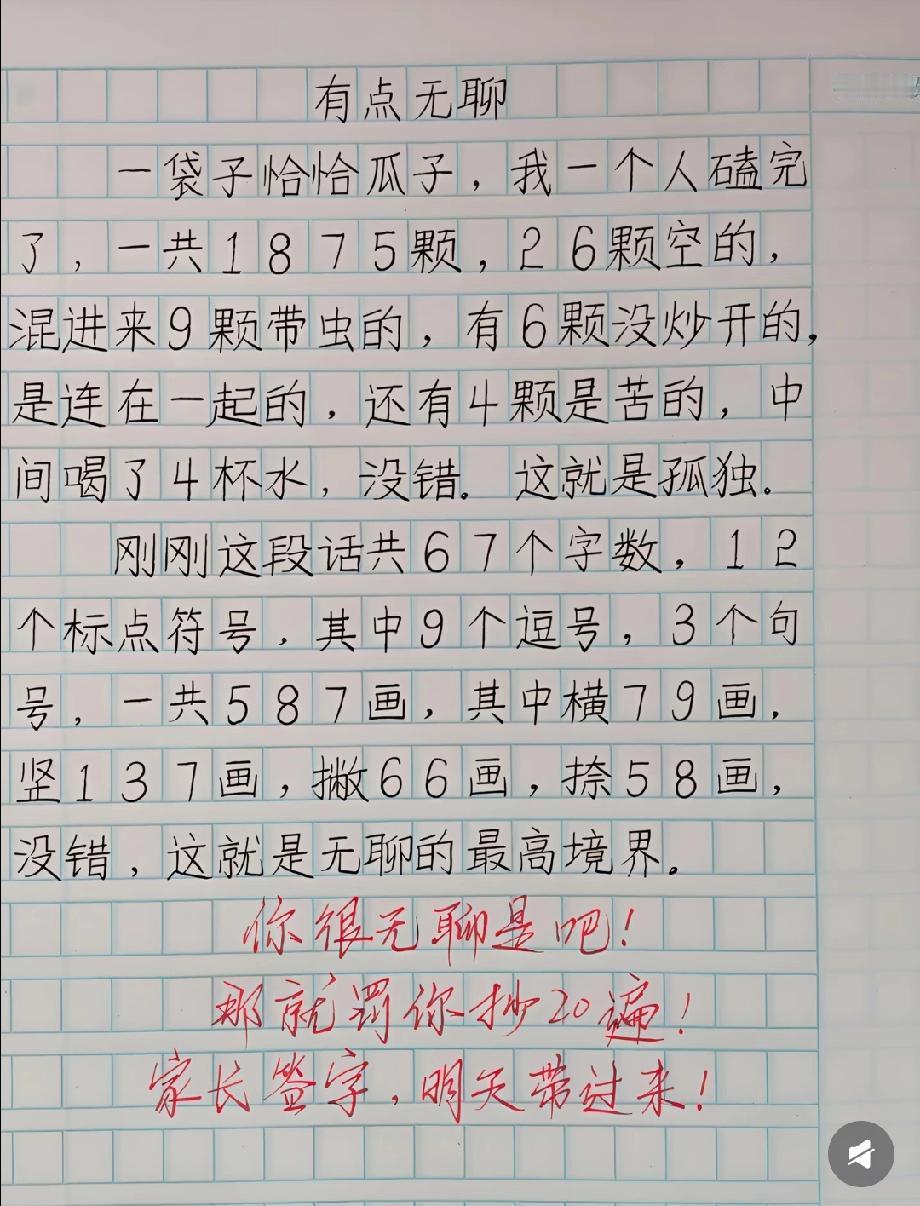 有点无聊
一袋子恰恰瓜子，我一个人磕完
了，一共1875颗，26颗空的，
混进来9颗带虫的，有6颗没炒开的，
是连在一起的，还有4颗是苦的，中
间喝了4杯水，没错。这就是孤独。
刚刚这段话共67个字数，12
个标点符号，其中9个逗号，3个句
号，一共587画，其中横79画，
竖137画，撇66画，捺58画，
没错，这就是无聊的最高境界。
你很无聊是吧！
那就罚你抄20遍！
家长签字，明天带过来！